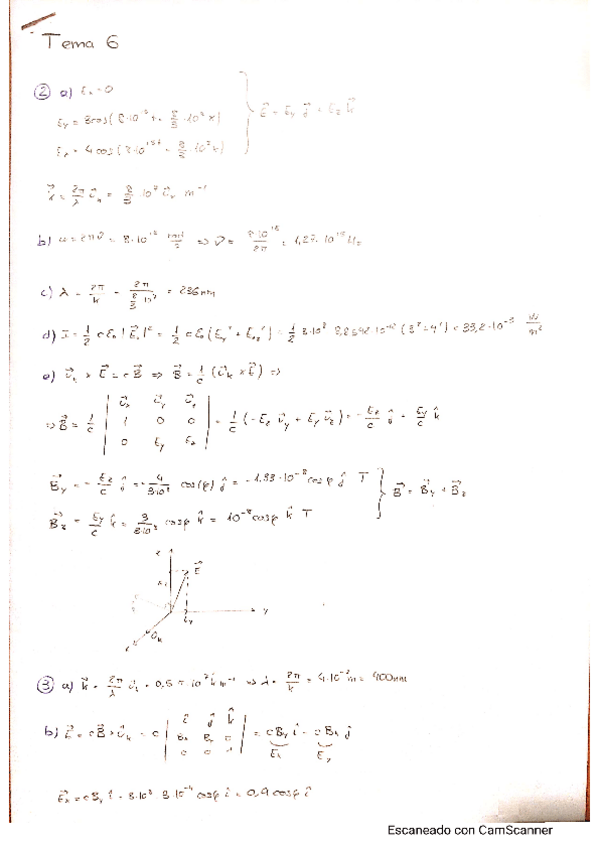 Tema 6
② a) Eₓ = 0
E_y = 3cos(8·10¹⁵t - 8/3·10⁷x)
E_z = 4cos(8·10¹⁵t - 8/3·10⁷x) } E⃗ = E_y ĵ + E_z k̂
k⃗ = 2π/λ û_k = 8/3 · 10⁷ û_x m⁻¹
b) ω = 2πν = 8·10¹⁵ rad/s ⇒ ν = 8·10¹⁵/2π = 1,27·10¹⁵ Hz
c) λ = 2π/k = 2π/(8/3·10⁷) = 236nm
d) I = 1/2 cε₀|E⃗₀|² = 1/2 cε₀(E_y² + E_oz²) = 1/2 3·10⁸ 8,8542·10⁻¹² (3²+4²) = 33,2·10⁻³ W/m²
e) û_k × E⃗ = cB⃗ ⇒ B⃗ = 1/c (û_k × E⃗) ⇒
⇒ B⃗ = 1/c | û_x û_y û_z | 1 0 0 | 0 E_y E_z | = 1/c (-E_z û_y + E_y û_z) = -E_z/c ĵ + E_y/c k̂
B⃗_y = -E_z/c ĵ = -4/3·10⁸ cos(φ) ĵ = -1.33·10⁻⁸ cosφ ĵ T
B⃗_z = E_y/c k̂ = 3/3·10⁸ cosφ k̂ = 10⁻⁸ cosφ k̂ T } B⃗ = B⃗_y + B⃗_z
z
E⃗
y
E_y
û_k
x
③ a) k⃗ = 2π/λ û_z = 0,5π 10⁷ k̂ m⁻¹ ⇒ λ = 2π/k = 4·10⁻⁷ m = 400nm
b) E⃗ = cB⃗ × û_k = c | î ĵ k̂ | Bₓ B_y 0 | 0 0 1 | = cB_y î - cBₓ ĵ
Eₓ E_y
E⃗ₓ = cB_y î = 3·10⁸ cosφ î = 0,9 cosφ î
Escaneado con CamScanner